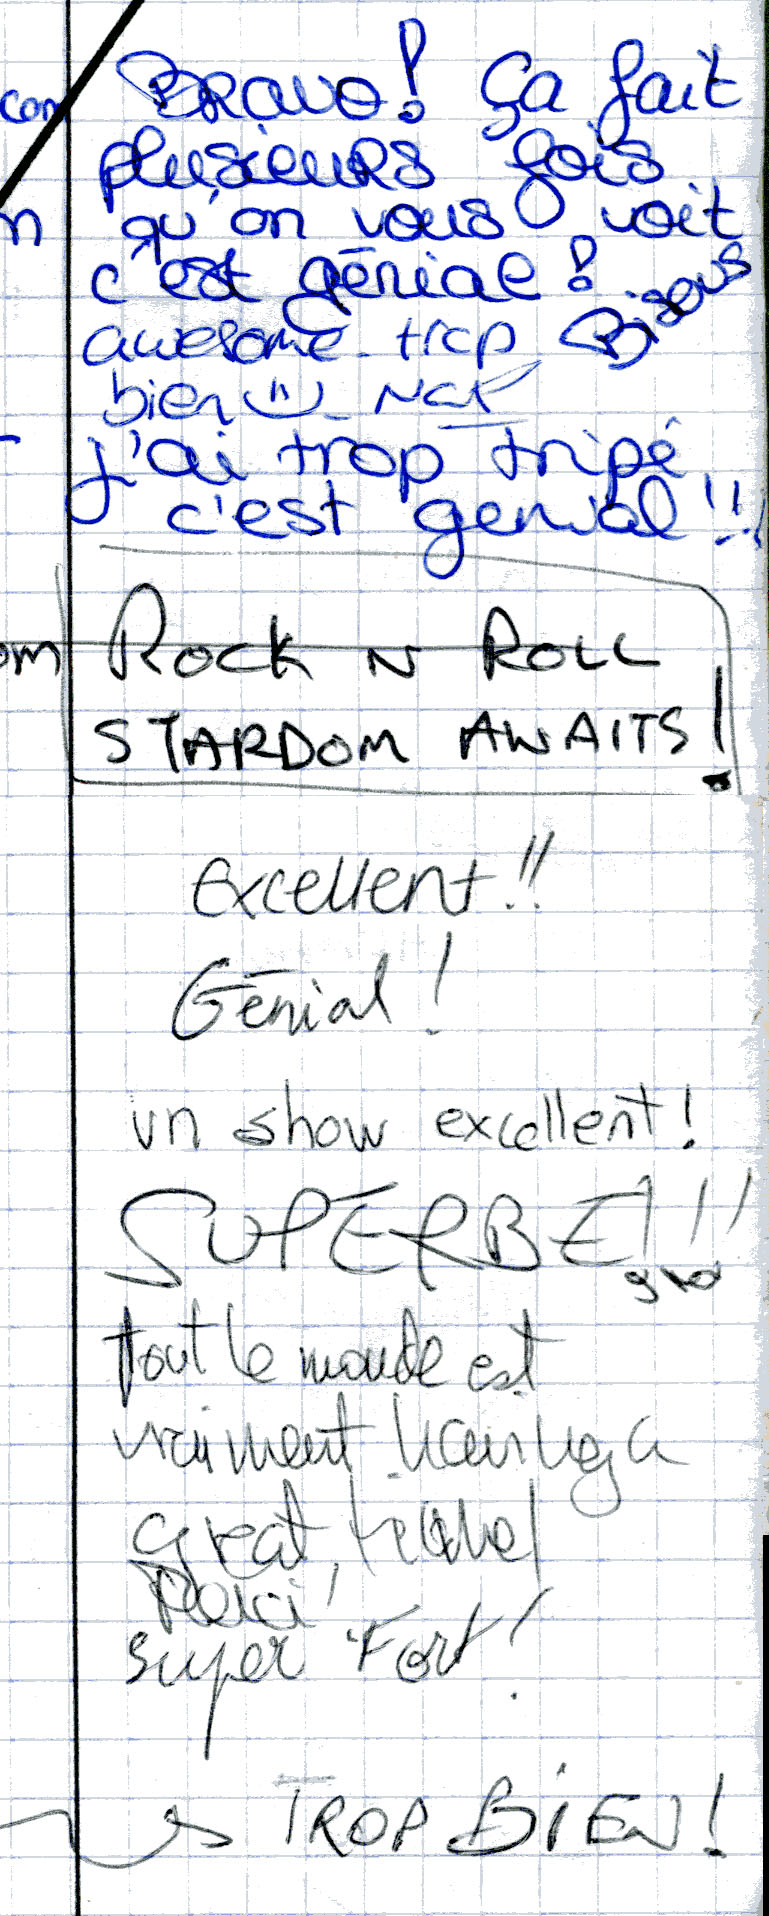 com Bravo! Ça fait
plusieurs fois
n qu'on vous voit
c'est génial! Bisous
awesome. trop
bien Nat
j'ai trop tripé
c'est genial!!!
om Rock N ROLL
STARDOM AWAITS!
Excellent!!
Génial!
un show excellent!
SUPERBE!!!
tout le monde est
vraiment
great,
Merci!
super Fort!
TROP BIEN!